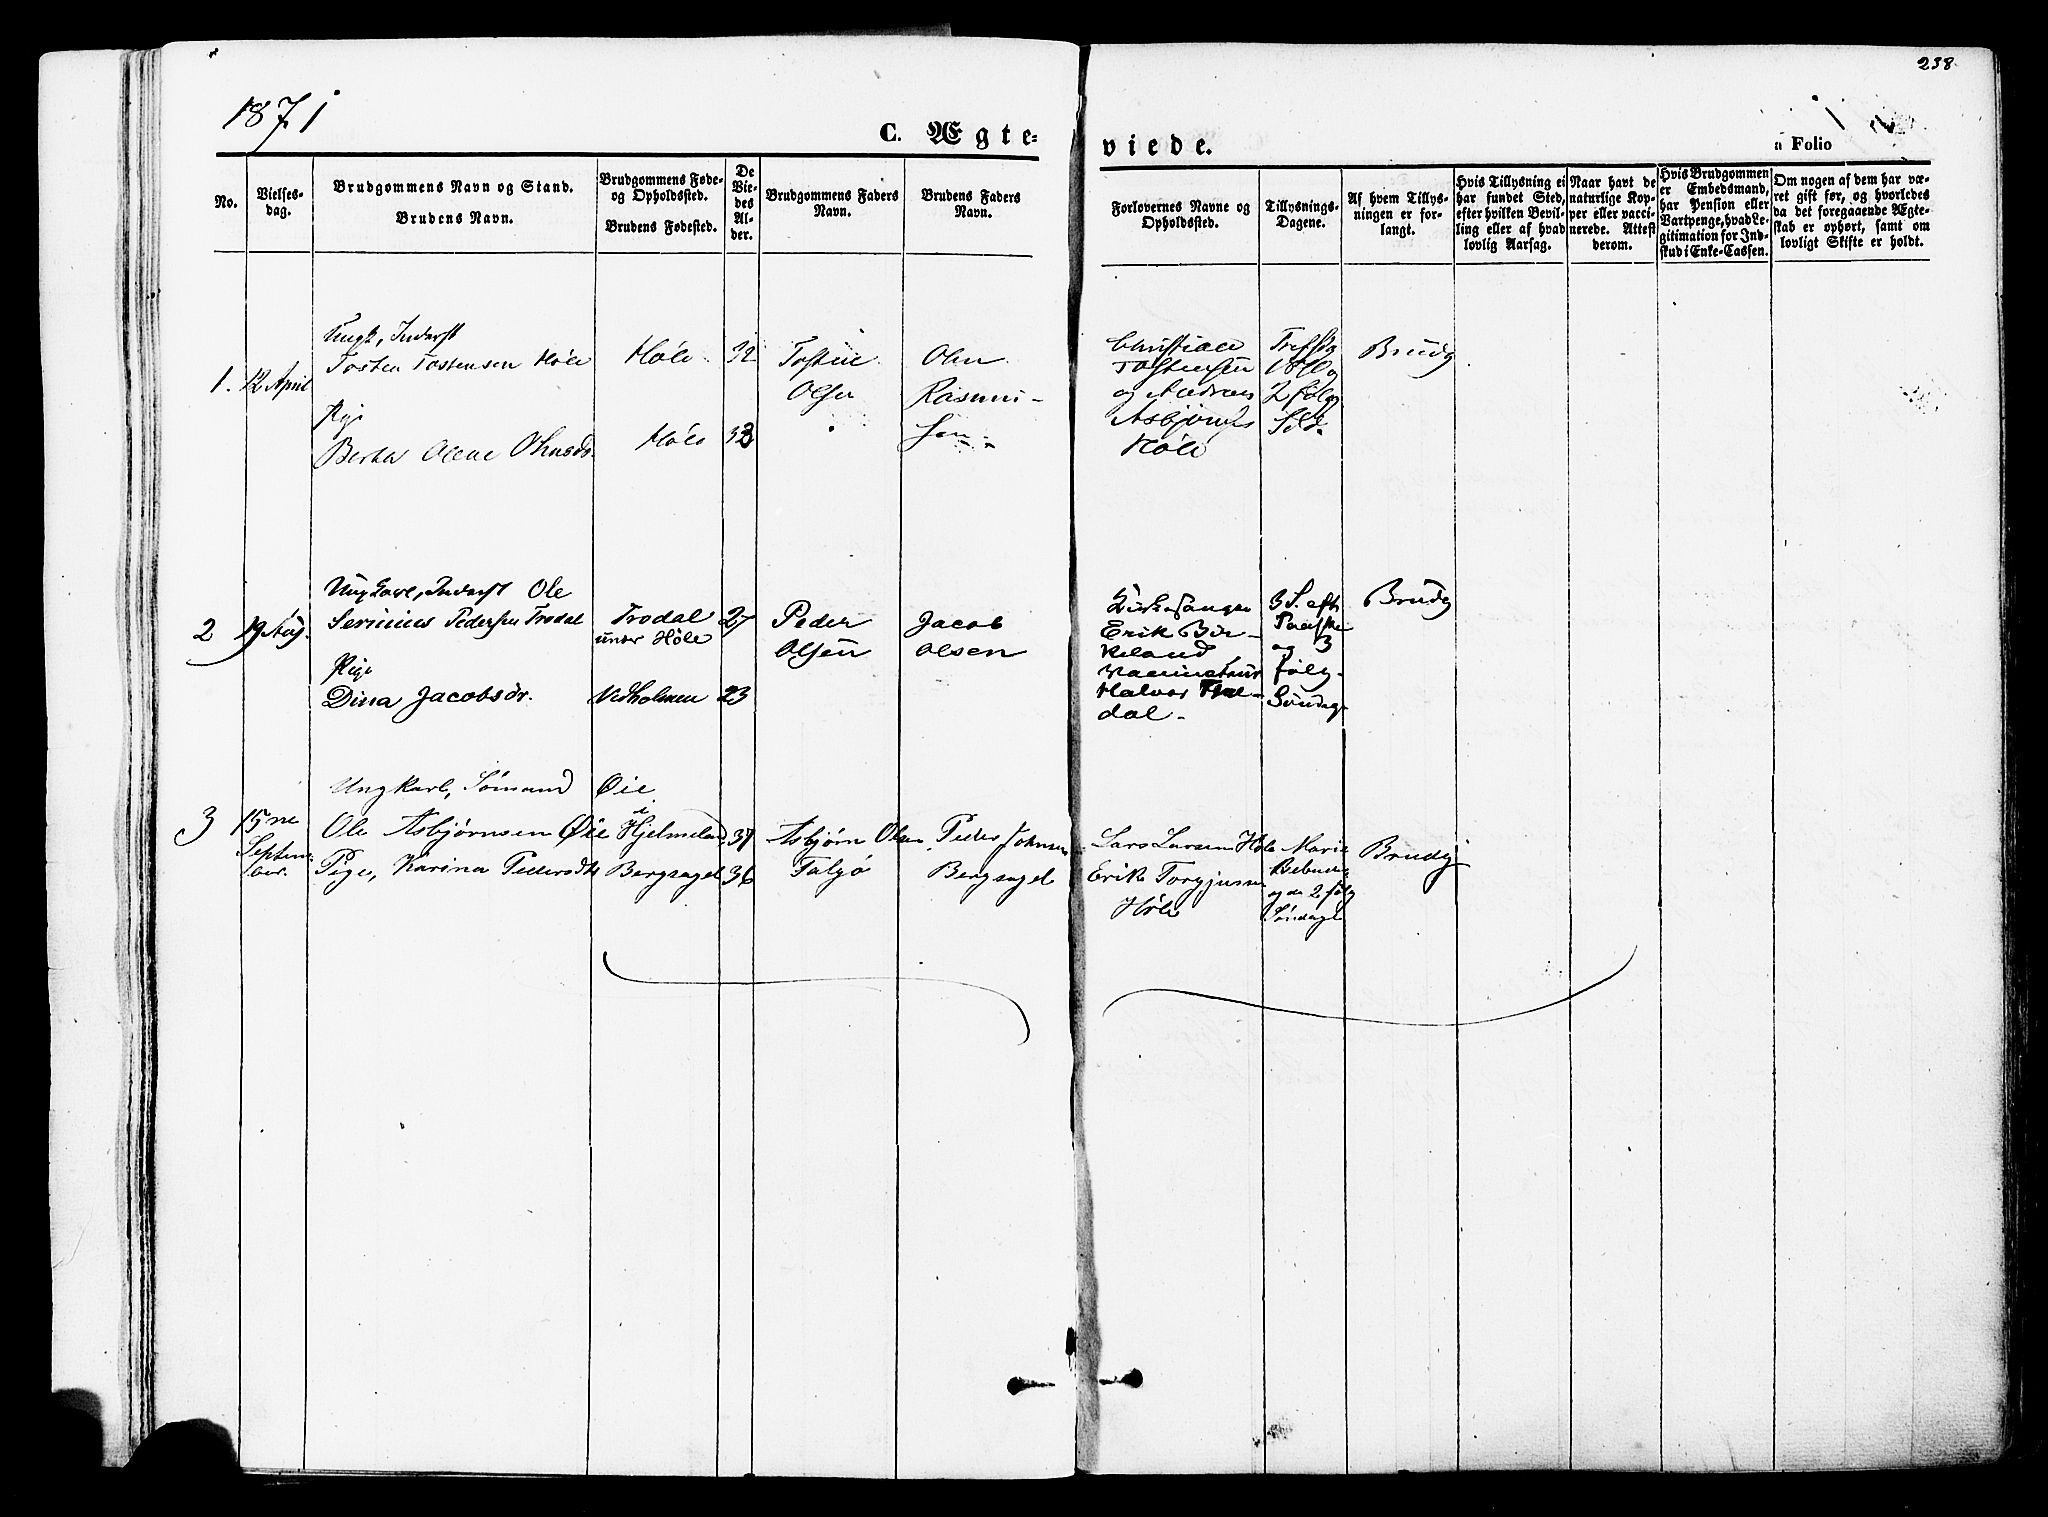 238
1871
C. Ægte=
viede.
Folio
No.
Vielses-
dag.
Brudgommens Navn og Stand.
Brudens Navn.
Brudgommens Føde-
og Opholdssted.
Brudens Fødested.
De
Vie-
des
Al-
der.
Brudgommens Faders
Navn.
Brudens Faders
Navn.
Forlovernes Navne og
Opholdssted.
Tillysnings-
Dagene.
Af hvem Tillys-
ningen er for-
langt.
Hvis Tillysning ei
har fundet Sted,
efter hvilken Bevil-
ling eller af hvad
lovlig Aarsag.
Naar havt de
naturlige Kop-
per eller vacci-
nerede. Attest
derom.
Hvis Brudgommen
er Embedsmand,
har Pension eller
Vartpenge, hvad Le-
gitimation for Ind-
skud i Enke-Cassen.
Om nogen af dem har væ-
ret gift før, og hvorledes
da det foregaaende Ægte-
skab er ophørt, samt om
lovligt Skifte er holdt.
1. 12 April
Ungk, Inderst
Tosten Tostensen Høle
Pige
Berta Olene Olsensdr.
Høle
Høle
32
33
Tosten
Olsen
Olen
Rasmus-
sen
Christian
Tostensen
og Andreas
Asbjørns
Høle
2 følg
Brudg
2 19 Aug.
Ungkarl, Inderst Ole
Serinius Pedersen Trodal
Pige
Dina Jacobsdr.
Trodal
under Høle
Vedholmen
27
23
Peder
Olsen
Jacob
Olsen
Kirkesanger
Erik Bir-
keland
Halvor
dal-
3 S. eft
Paaske
og 3
følg-
Søndag-
Brudg
3 15ne
Septem-
ber.
Ungkarl, Sømand
Ole Asbjørnsen Øie
Pige, Karina Pedersdtr
Øie
i
Hjelmeland
Bergsagel
37
36
Asbjørn Olsen
Falgø
Peder Johnsen
Bergsagel
Lars Larsen Høle
Erik Torgjusen
Høle
Marie
Bebud
og de 2 følg
Søndage
Brudg